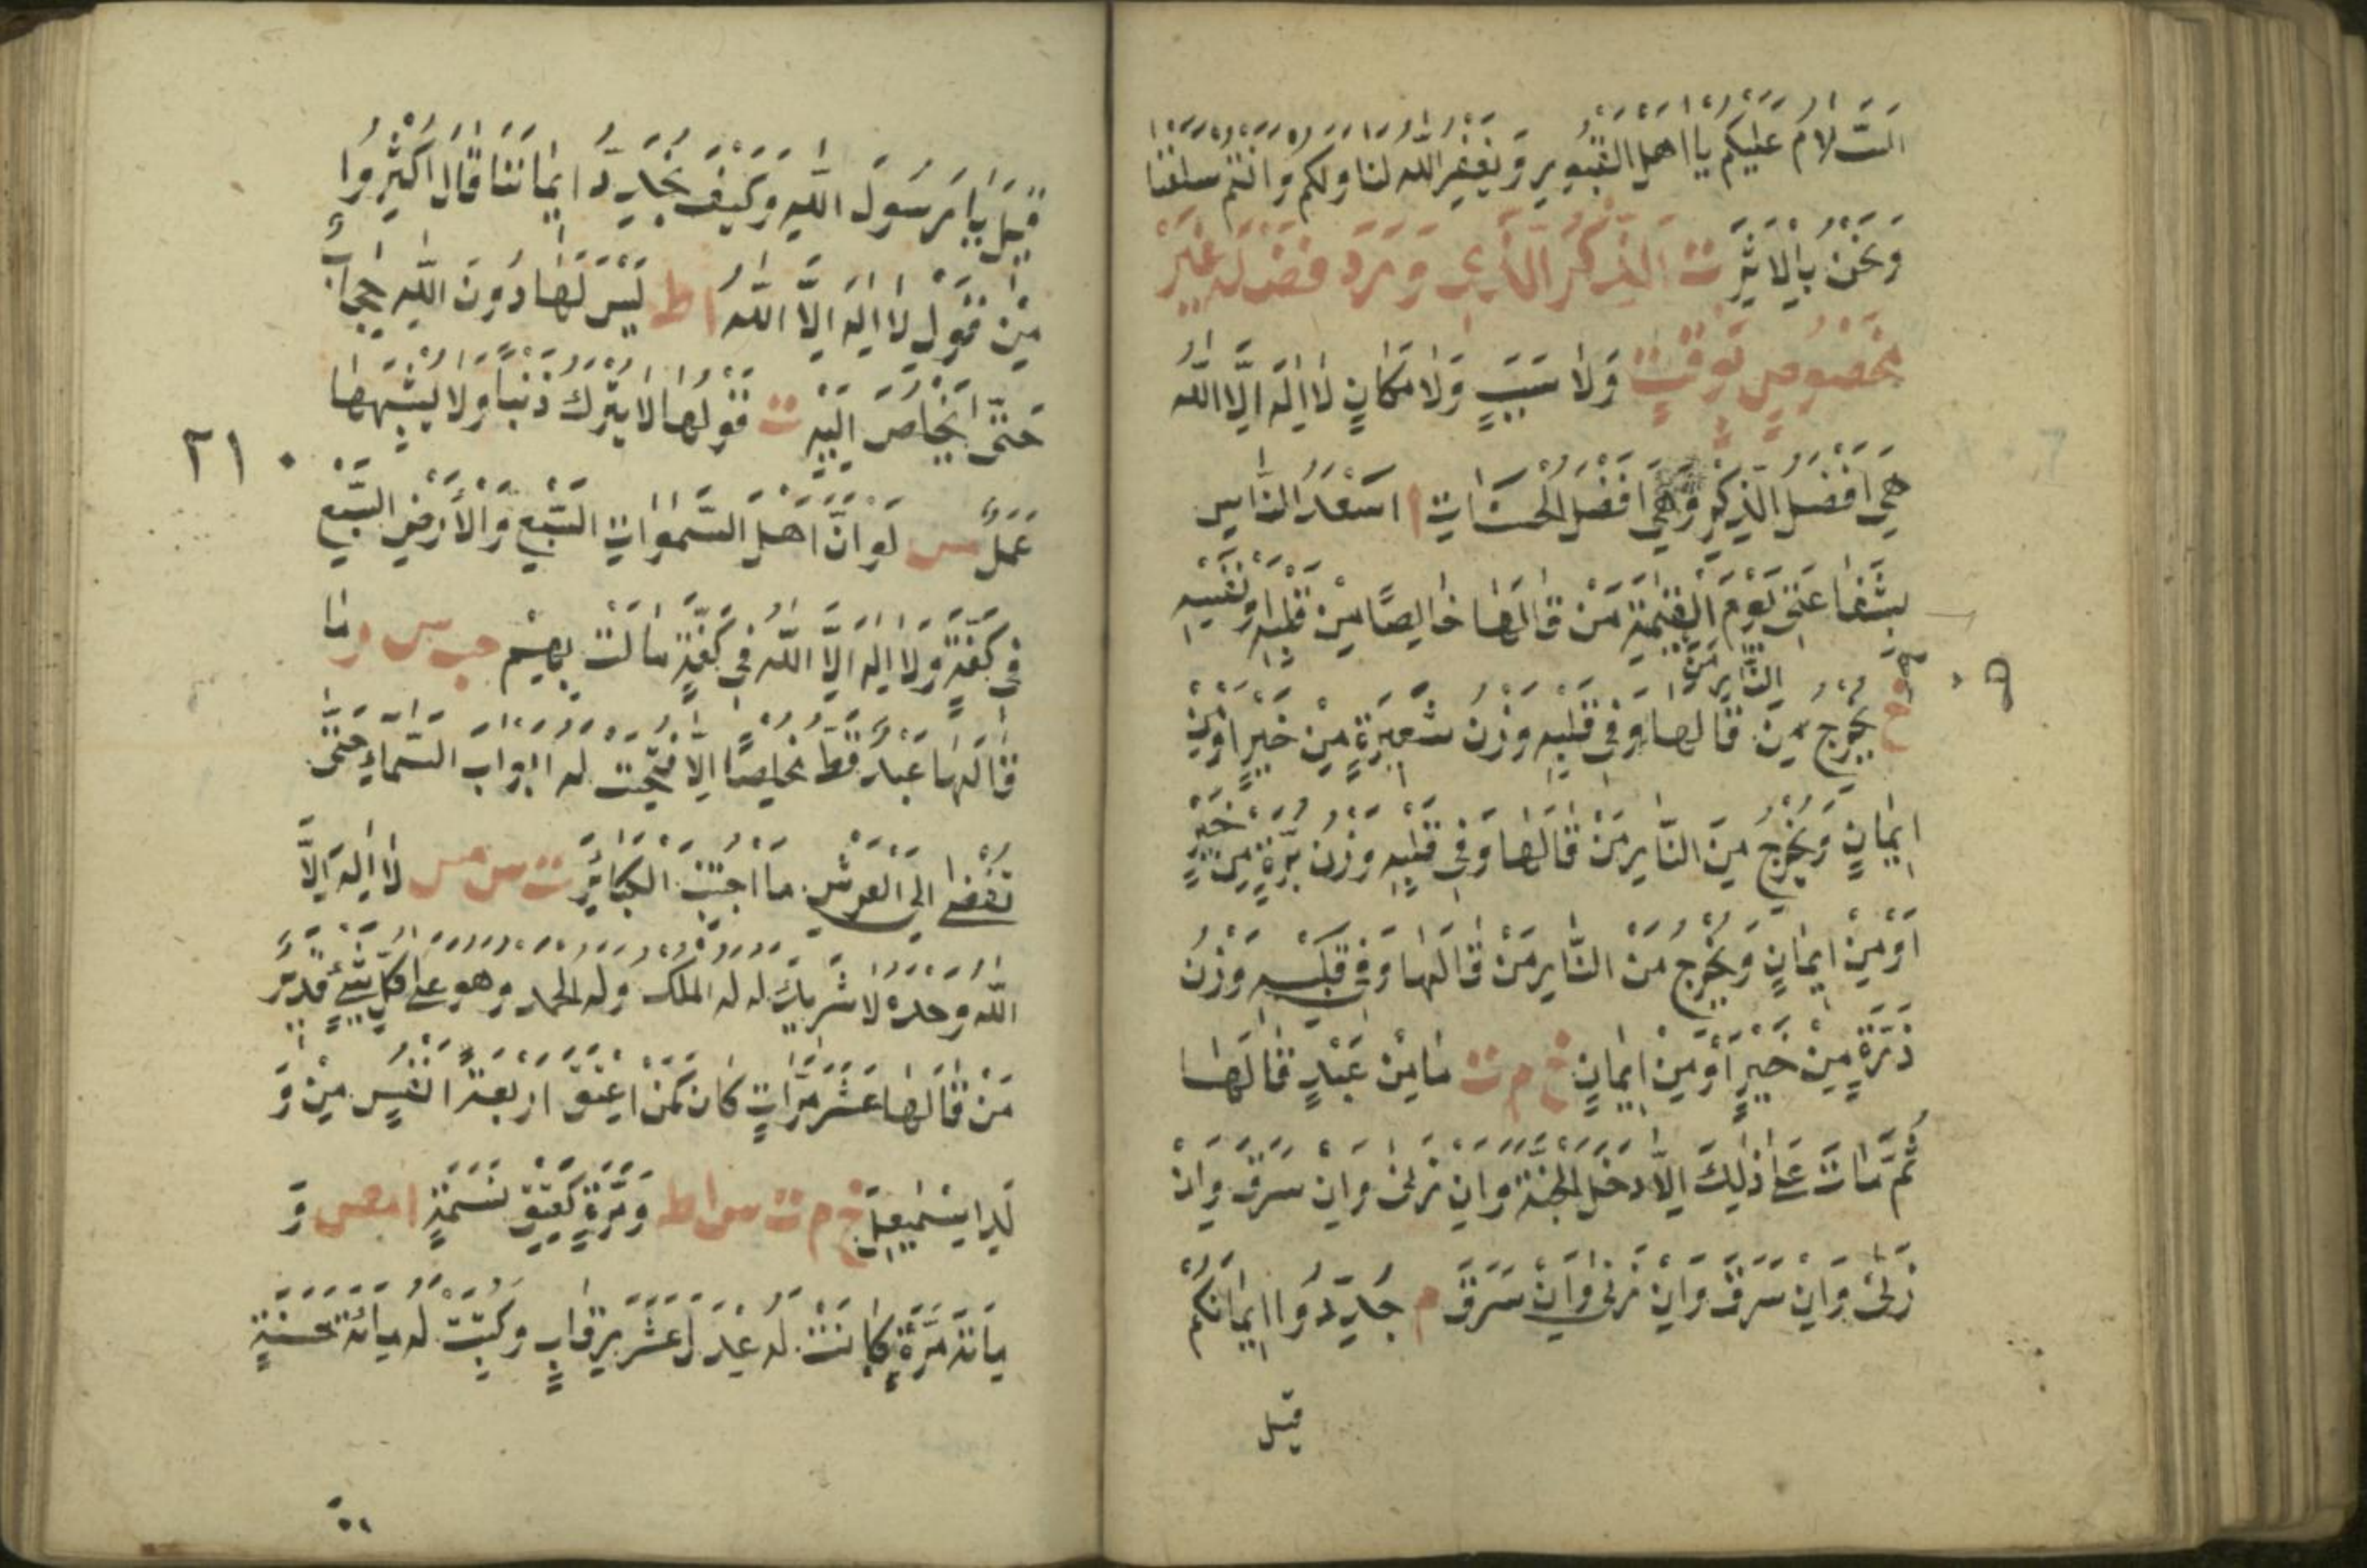 اَلسَّلَامُ عَلَيْكُمْ يَا اَهْلَ الْقُبُورِ وَيَغْفِرُ اللّٰهُ لَنَا وَلَكُمْ وَاَنْتُمْ سَلَفُنَا
وَنَحْنُ بِالْاَثَرِ ت اَلذِّكْرُ الَّذِي وَرَدَ فَضْلُهُ غَيْرَ
مَخْصُوصٍ بِوَقْتٍ وَلَا سَبَبٍ وَلَا مَكَانٍ لَا اِلٰهَ اِلَّا اللّٰه
هِيَ اَفْضَلُ الذِّكْرِ وَهِيَ اَفْضَلُ الْحَسَنَاتِ ا اَسْعَدُ النَّاسِ
بِشَفَاعَتِي يَوْمَ الْقِيٰمَةِ مَنْ قَالَهَا خَالِصًا مِنْ قَلْبِهِ اَوْ نَفْسِهِ
خ يَخْرُجُ مِنَ النَّارِ مَنْ قَالَهَا وَفِي قَلْبِهِ وَزْنُ شَعِيرَةٍ مِنْ خَيْرٍ اَوْ مِنْ
٩
اِيمَانٍ وَيَخْرُجُ مِنَ النَّارِ مَنْ قَالَهَا وَفِي قَلْبِهِ وَزْنُ بُرَّةٍ مِنْ خَيْرٍ
اَوْ مِنْ اِيمَانٍ وَيَخْرُجُ مِنَ النَّارِ مَنْ قَالَهَا وَفِي قَلْبِهِ وَزْنُ
ذَرَّةٍ مِنْ خَيْرٍ اَوْ مِنْ اِيمَانٍ خ م ت مَا مِنْ عَبْدٍ قَالَهَا
ثُمَّ مَاتَ عَلٰى ذٰلِكَ اِلَّا دَخَلَ الْجَنَّةَ وَاِنْ زَنٰى وَاِنْ سَرَقَ وَاِنْ
زَنٰى وَاِنْ سَرَقَ وَاِنْ زَنٰى وَاِنْ سَرَقَ م جَدِّدُوا اِيمَانَكُمْ
قيل
قِيلَ يَا رَسُولَ اللّٰهِ وَكَيْفَ نُجَدِّدُ اِيمَانَنَا قَالَ اَكْثِرُوا
مِنْ قَوْلِ لَا اِلٰهَ اِلَّا اللّٰهُ ا ط لَيْسَ لَهَا دُونَ اللّٰهِ حِجَابٌ
حَتّٰى تَخْلُصَ اِلَيْهِ ت قَوْلُهَا لَا يَتْرُكُ ذَنْبًا وَلَا يُشْبِهُهَا
٢١
عَمَلٌ مس لَوْ اَنَّ اَهْلَ السَّمٰوَاتِ السَّبْعِ وَالْاَرْضِينَ السَّبْعِ
فِي كِفَّةٍ وَلَا اِلٰهَ اِلَّا اللّٰهُ فِي كِفَّةٍ مَالَتْ بِهِمْ حب س ر مَا
قَالَهَا عَبْدٌ قَطُّ مُخْلِصًا اِلَّا فُتِحَتْ لَهُ اَبْوَابُ السَّمَاءِ حَتّٰى
تُفْضِيَ اِلَى الْعَرْشِ مَا اجْتُنِبَ الْكَبَائِرُ ت س مس لَا اِلٰهَ اِلَّا
اللّٰهُ وَحْدَهُ لَا شَرِيكَ لَهُ لَهُ الْمُلْكُ وَلَهُ الْحَمْدُ وَهُوَ عَلٰى كُلِّ شَيْءٍ قَدِيرٌ
مَنْ قَالَهَا عَشْرَ مَرَّاتٍ كَانَ كَمَنْ اَعْتَقَ اَرْبَعَةَ اَنْفُسٍ مِنْ وَ
لَدِ اِسْمٰعِيلَ خ م ت س ا ط وَمَرَّةً كَعِتْقِ نَسَمَةٍ ا مص وَ
مِائَةَ مَرَّةٍ كَانَتْ لَهُ عِدْلَ عَشْرِ رِقَابٍ وَكُتِبَتْ لَهُ مِائَةُ حَسَنَةٍ